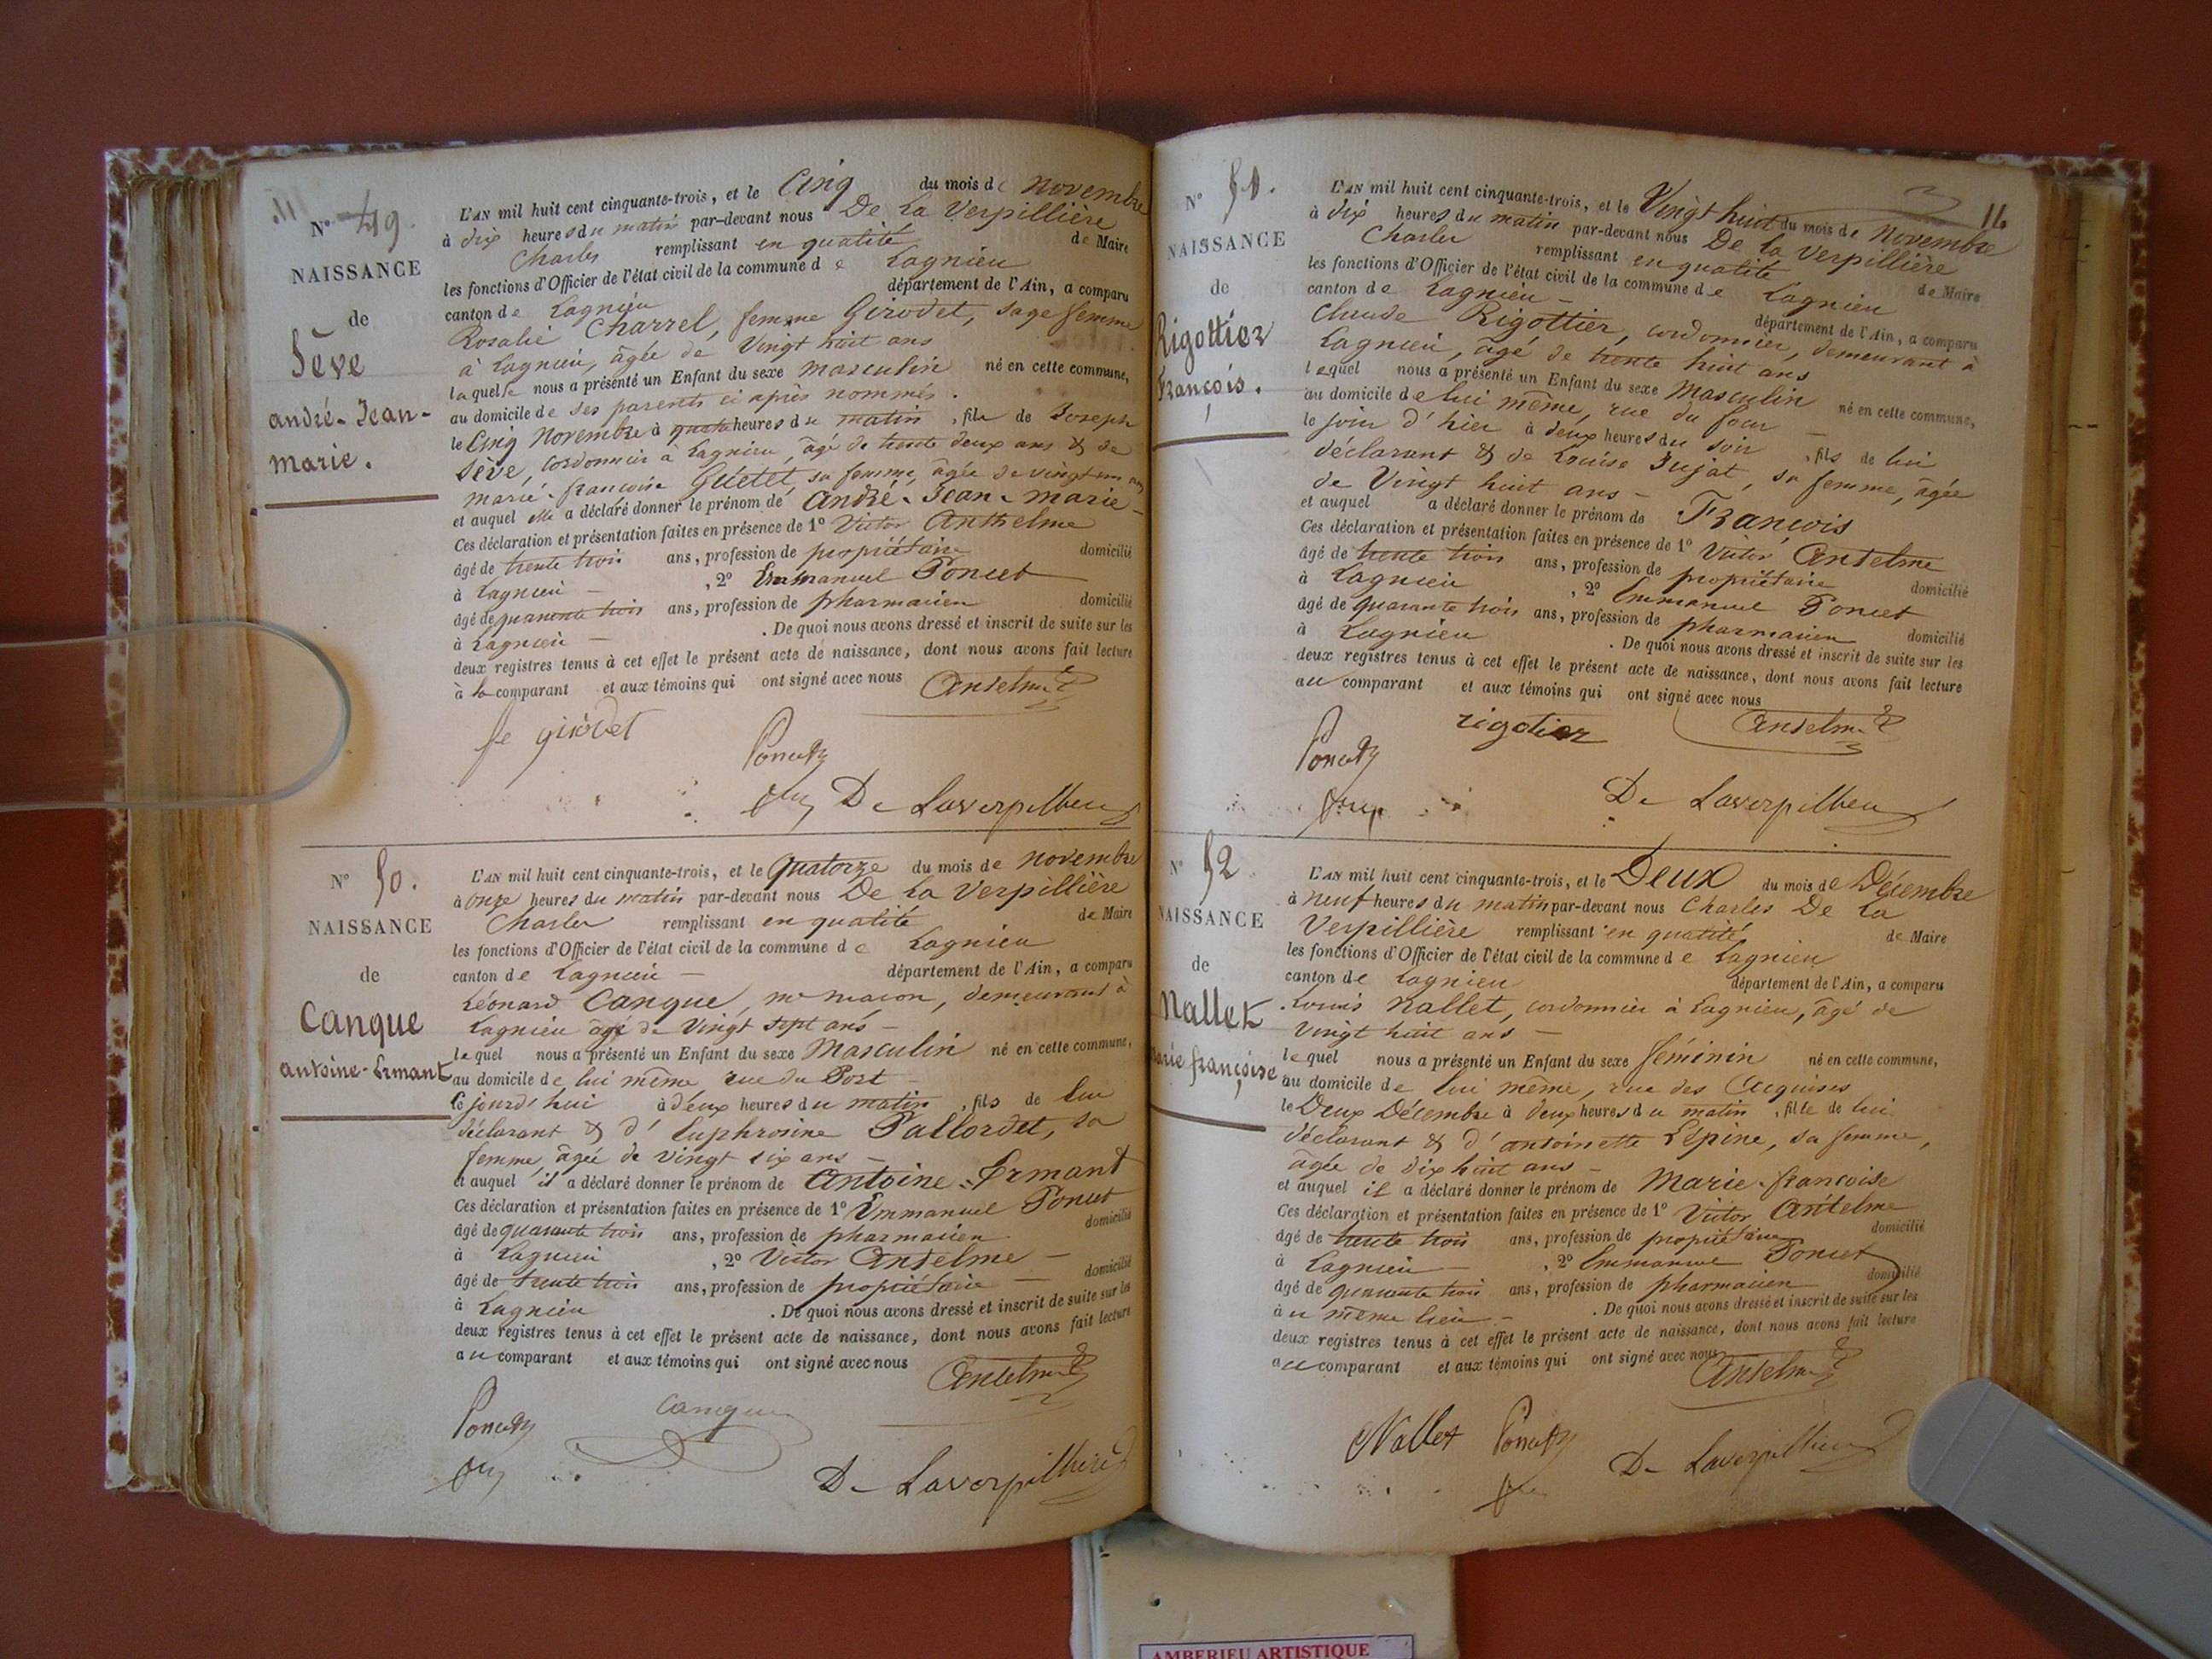 N° 49.
NAISSANCE
de
Sève
andré-Jean-
marie.
L'AN mil huit cent cinquante-trois, et le Cinq du mois de novembre
à dix heures du matin par-devant nous De La Verpillière
Charles remplissant en qualité de Maire
les fonctions d'Officier de l'état civil de la commune de Lagnieu
canton de Lagnieu département de l'Ain, a comparu
Rosalie Charrel, femme Girodet, sage femme
à Lagnieu, âgée de Vingt huit ans
laquelle nous a présenté un Enfant du sexe masculin né en cette commune,
au domicile de ses parents ci après nommés.
le Cinq Novembre à quatre heures du matin, fils de Joseph
Sève, cordonnier à Lagnieu, âgé de trente deux ans & de
marie-francoise Guétet, sa femme, âgée de vingt un ans
et auquel elle a déclaré donner le prénom de André-Jean-marie-
Ces déclaration et présentation faites en présence de 1° Victor Anthelme
âgé de trente trois ans, profession de propriétaire domicilié
à Lagnieu - , 2° Emmanuel Poncet
âgé de quarante trois ans, profession de pharmacien domicilié
à Lagnieu - . De quoi nous avons dressé et inscrit de suite sur les
deux registres tenus à cet effet le présent acte de naissance, dont nous avons fait lecture
à la comparant et aux témoins qui ont signé avec nous Anselme
fe girodet
Poncet
De Laverpilliere
N° 50.
NAISSANCE
de
Canque
antoine-Ermant
L'AN mil huit cent cinquante-trois, et le quatorze du mois de novembre
à onze heures du matin par-devant nous De La Verpillière
Charles remplissant en qualité de Maire
les fonctions d'Officier de l'état civil de la commune de Lagnieu
canton de Lagnieu - département de l'Ain, a comparu
Léonard Canque, me macon, demeurant à
Lagnieu âgé de Vingt sept ans -
lequel nous a présenté un Enfant du sexe Masculin né en cette commune,
au domicile de lui même, rue du Port -
ce jourd'hui à deux heures du matin, fils de lui
déclarant & d'Euphrosine Pallordet, sa
femme, âgée de vingt six ans -
et auquel il a déclaré donner le prénom de Antoine-Ermant
Ces déclaration et présentation faites en présence de 1° Emmanuel Poncet
âgé de quarante trois ans, profession de pharmacien domicilié
à Lagnieu , 2° Victor Anselme -
âgé de trente trois ans, profession de propriétaire - domicilié
à Lagnieu . De quoi nous avons dressé et inscrit de suite sur les
deux registres tenus à cet effet le présent acte de naissance, dont nous avons fait lecture
au comparant et aux témoins qui ont signé avec nous Anselme
Poncet canque
De Laverpilliere
16
N° 51.
NAISSANCE
de
Rigottier
François.
L'AN mil huit cent cinquante-trois, et le Vingt huit du mois de Novembre
à dix heures du matin par-devant nous De la Verpillière
Charles remplissant en qualité de Maire
les fonctions d'Officier de l'état civil de la commune de Lagnieu
canton de Lagnieu - département de l'Ain, a comparu
Claude Rigottier, cordonnier, demeurant à
Lagnieu, âgé de trente huit ans
lequel nous a présenté un Enfant du sexe Masculin né en cette commune,
au domicile de lui même, rue du four -
le jour d'hier à deux heures du soir, fils de lui
déclarant & de Louise Jujat, sa femme, âgée
de Vingt huit ans -
et auquel a déclaré donner le prénom de François
Ces déclaration et présentation faites en présence de 1° Victor Anselme
âgé de trente trois ans, profession de propriétaire domicilié
à Lagnieu , 2° Emmanuel Poncet
âgé de quarante trois ans, profession de pharmacien domicilié
à Lagnieu . De quoi nous avons dressé et inscrit de suite sur les
deux registres tenus à cet effet le présent acte de naissance, dont nous avons fait lecture
au comparant et aux témoins qui ont signé avec nous
rigotier Anselme
Poncet
De Laverpilliere
N° 52
NAISSANCE
de
Nallet
marie françoise
L'AN mil huit cent cinquante-trois, et le Deux du mois de Décembre
à neuf heures du matin par-devant nous Charles De La
Verpillière remplissant en qualité de Maire
les fonctions d'Officier de l'état civil de la commune de Lagnieu
canton de Lagnieu département de l'Ain, a comparu
Louis Nallet, cordonnier à Lagnieu, âgé de
vingt huit ans -
lequel nous a présenté un Enfant du sexe féminin né en cette commune,
au domicile de lui même, rue des
le Deux Décembre à deux heures du matin, fille de lui
déclarant & d'antoinette Lépine, sa femme,
âgée de dix huit ans -
et auquel il a déclaré donner le prénom de Marie-francoise
Ces déclaration et présentation faites en présence de 1° Victor Antelme
âgé de trente trois ans, profession de propriétaire domicilié
à Lagnieu - , 2° Emmanuel Poncet
âgé de quarante trois ans, profession de pharmacien domicilié
à u même lieu - . De quoi nous avons dressé et inscrit de suite sur les
deux registres tenus à cet effet le présent acte de naissance, dont nous avons fait lecture
au comparant et aux témoins qui ont signé avec nous Anselme
Nallet Poncet
De Laverpilliere
AMBERIEU ARTISTIQUE